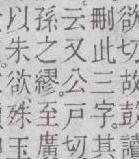 欲切故彭讀
刪此三字其
云又公戸切
孫之繆至廣
以朱欲殊